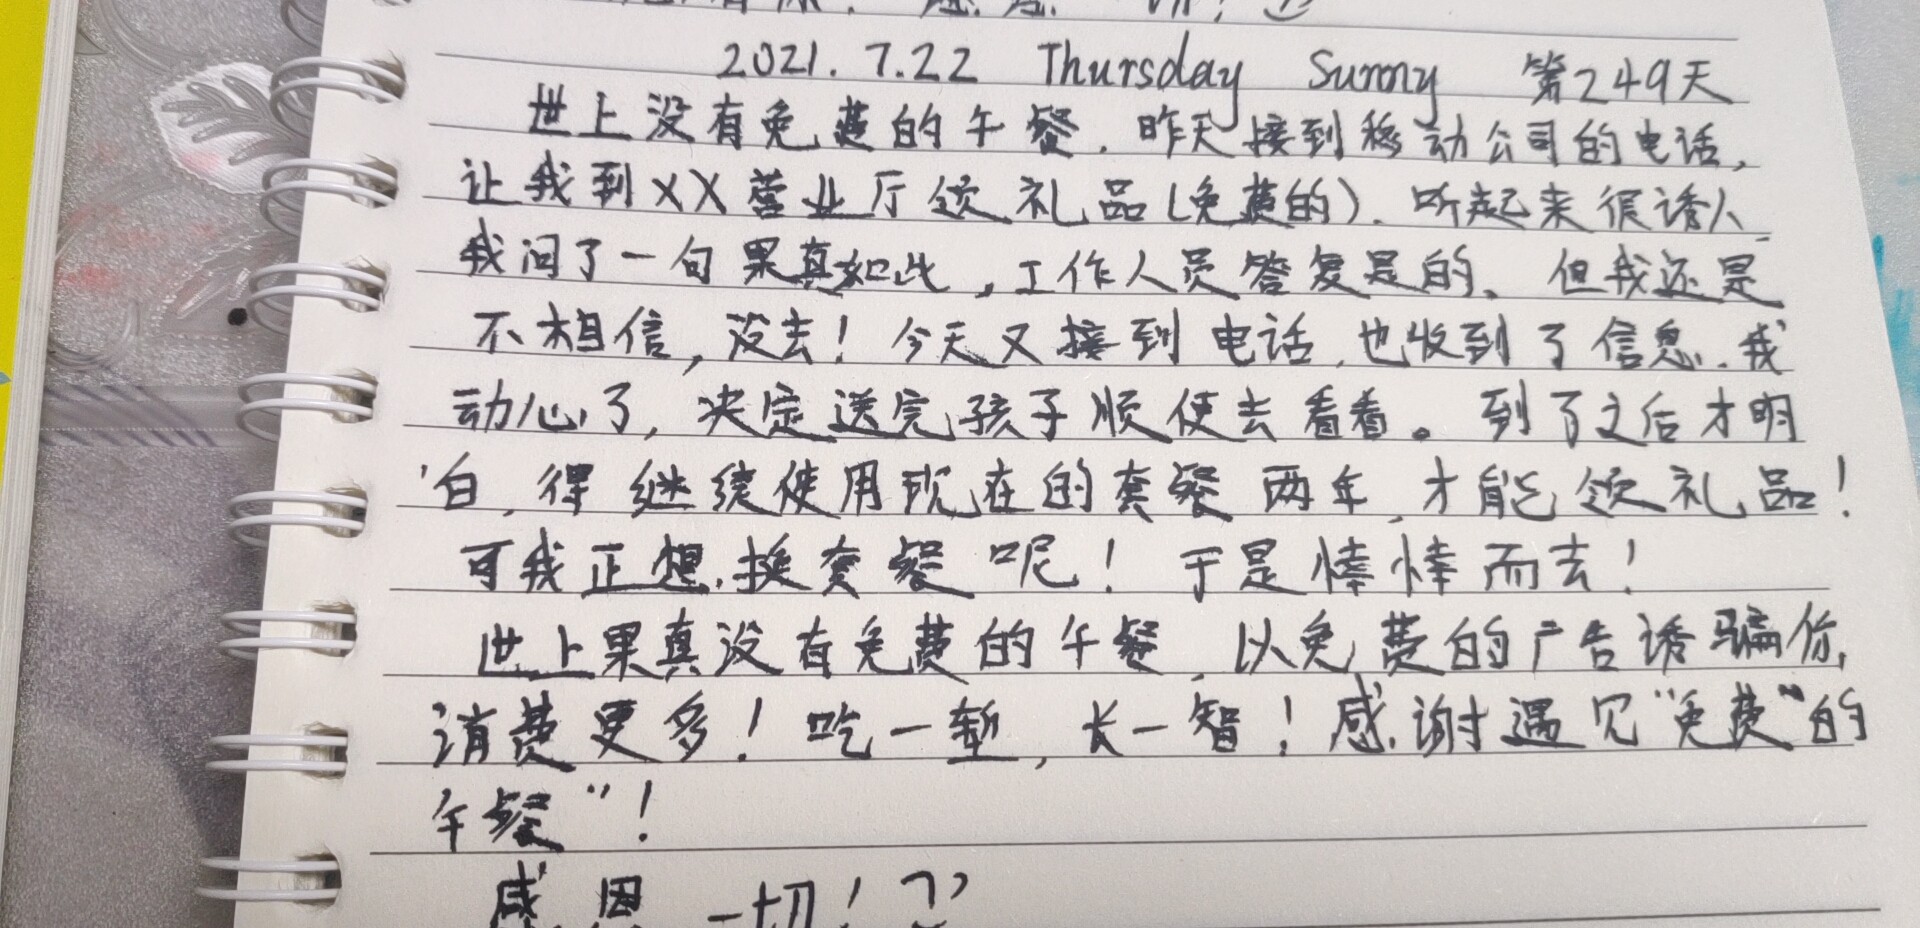 2021.7.22 Thursday Sunny 第249天
世上没有免费的午餐.昨天接到移动公司的电话,
让我到XX营业厅领礼品(免费的).听起来很诱人.
我问了一句果真如此,工作人员答复是的.但我还是
不相信,没去!今天又接到电话,也收到了信息.我
动心了,决定送完孩子顺便去看看。到了之后才明
白,得继续使用现在的套餐两年,才能领礼品!
可我正想换套餐呢!于是悻悻而去!
世上果真没有免费的午餐,以免费的广告诱骗你,
消费更多!吃一堑,长一智!感谢遇见"免费"的
午餐"!
感恩一切!